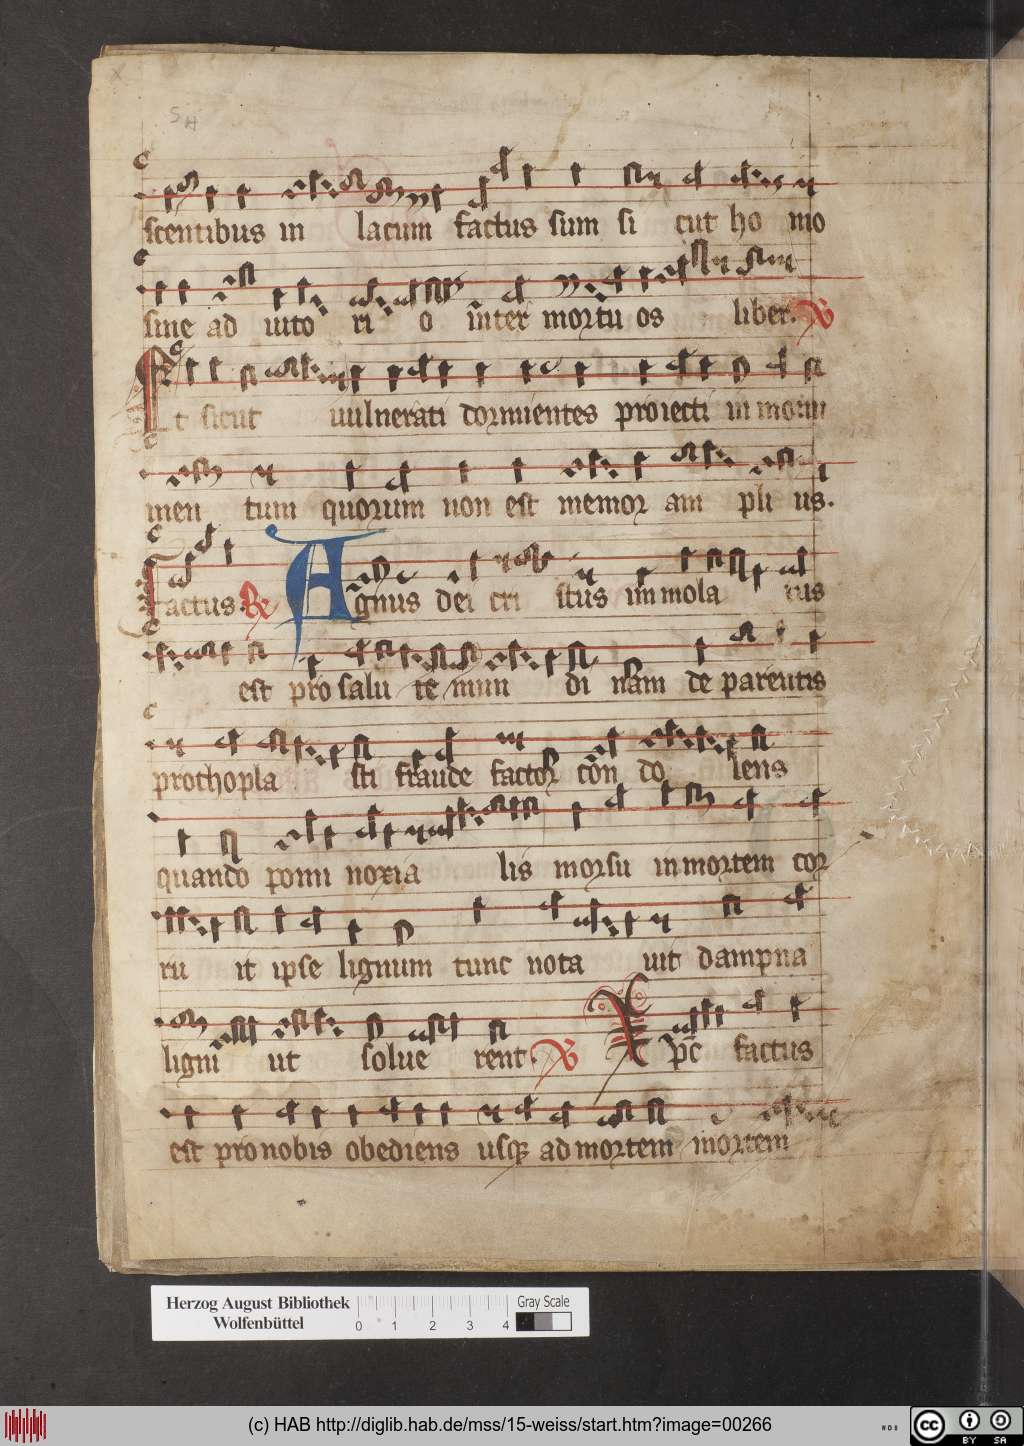 scentibus in lacum factus sum si cut ho mo
sine ad iuto ri o inter mortu os liber.
Et sicut uulnerati dormientes proiecti in monu
men tum quorum non est memor am pli us.
Factus. Agnus dei cri stus immola tus
est pro salu te mun di nam de parentis
prothopla sti fraude factor con do lens
quando pomi noxia lis morsu in mortem cor
ru it ipse lignum tunc nota uit dampna
ligni ut solue rent. Xpc factus
est pro nobis obediens usq ad mortem mortem
Herzog August Bibliothek
Wolfenbüttel
0 1 2 3 4
Gray Scale
(c) HAB http://diglib.hab.de/mss/15-weiss/start.htm?image=00266
cc BY SA